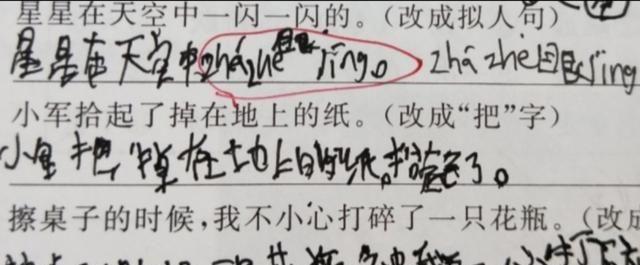 星星在天空中一闪一闪的。(改成拟人句)
星星在天空中zházhe眼jing。 zházhe眼jing
小军拾起了掉在地上的纸。(改成“把”字)
小军把掉在土地上的纸拾起了。
擦桌子的时候,我不小心打碎了一只花瓶。(改成